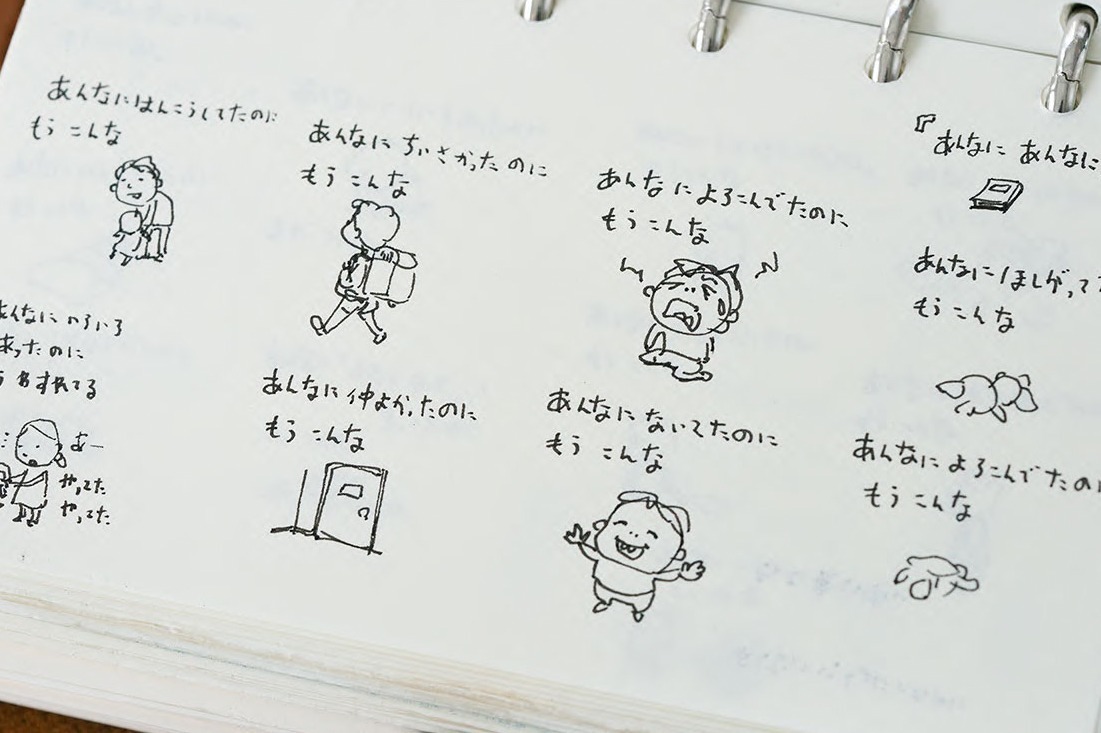 あんなにはんこうしてたのに
もう こんな
あんなに ちいさかったのに
もう こんな
あんなに よろこんでたのに
もう こんな
『
あんなに あんなに
あんなに ほしがって
もう こんな
あんなに いろいろ
あったのに
わすれてる
あー
やってた
やってた
あんなに 仲よかったのに
もう こんな
あんなに ないてたのに
もう こんな
あんなに よろこんでたの
もう こんな